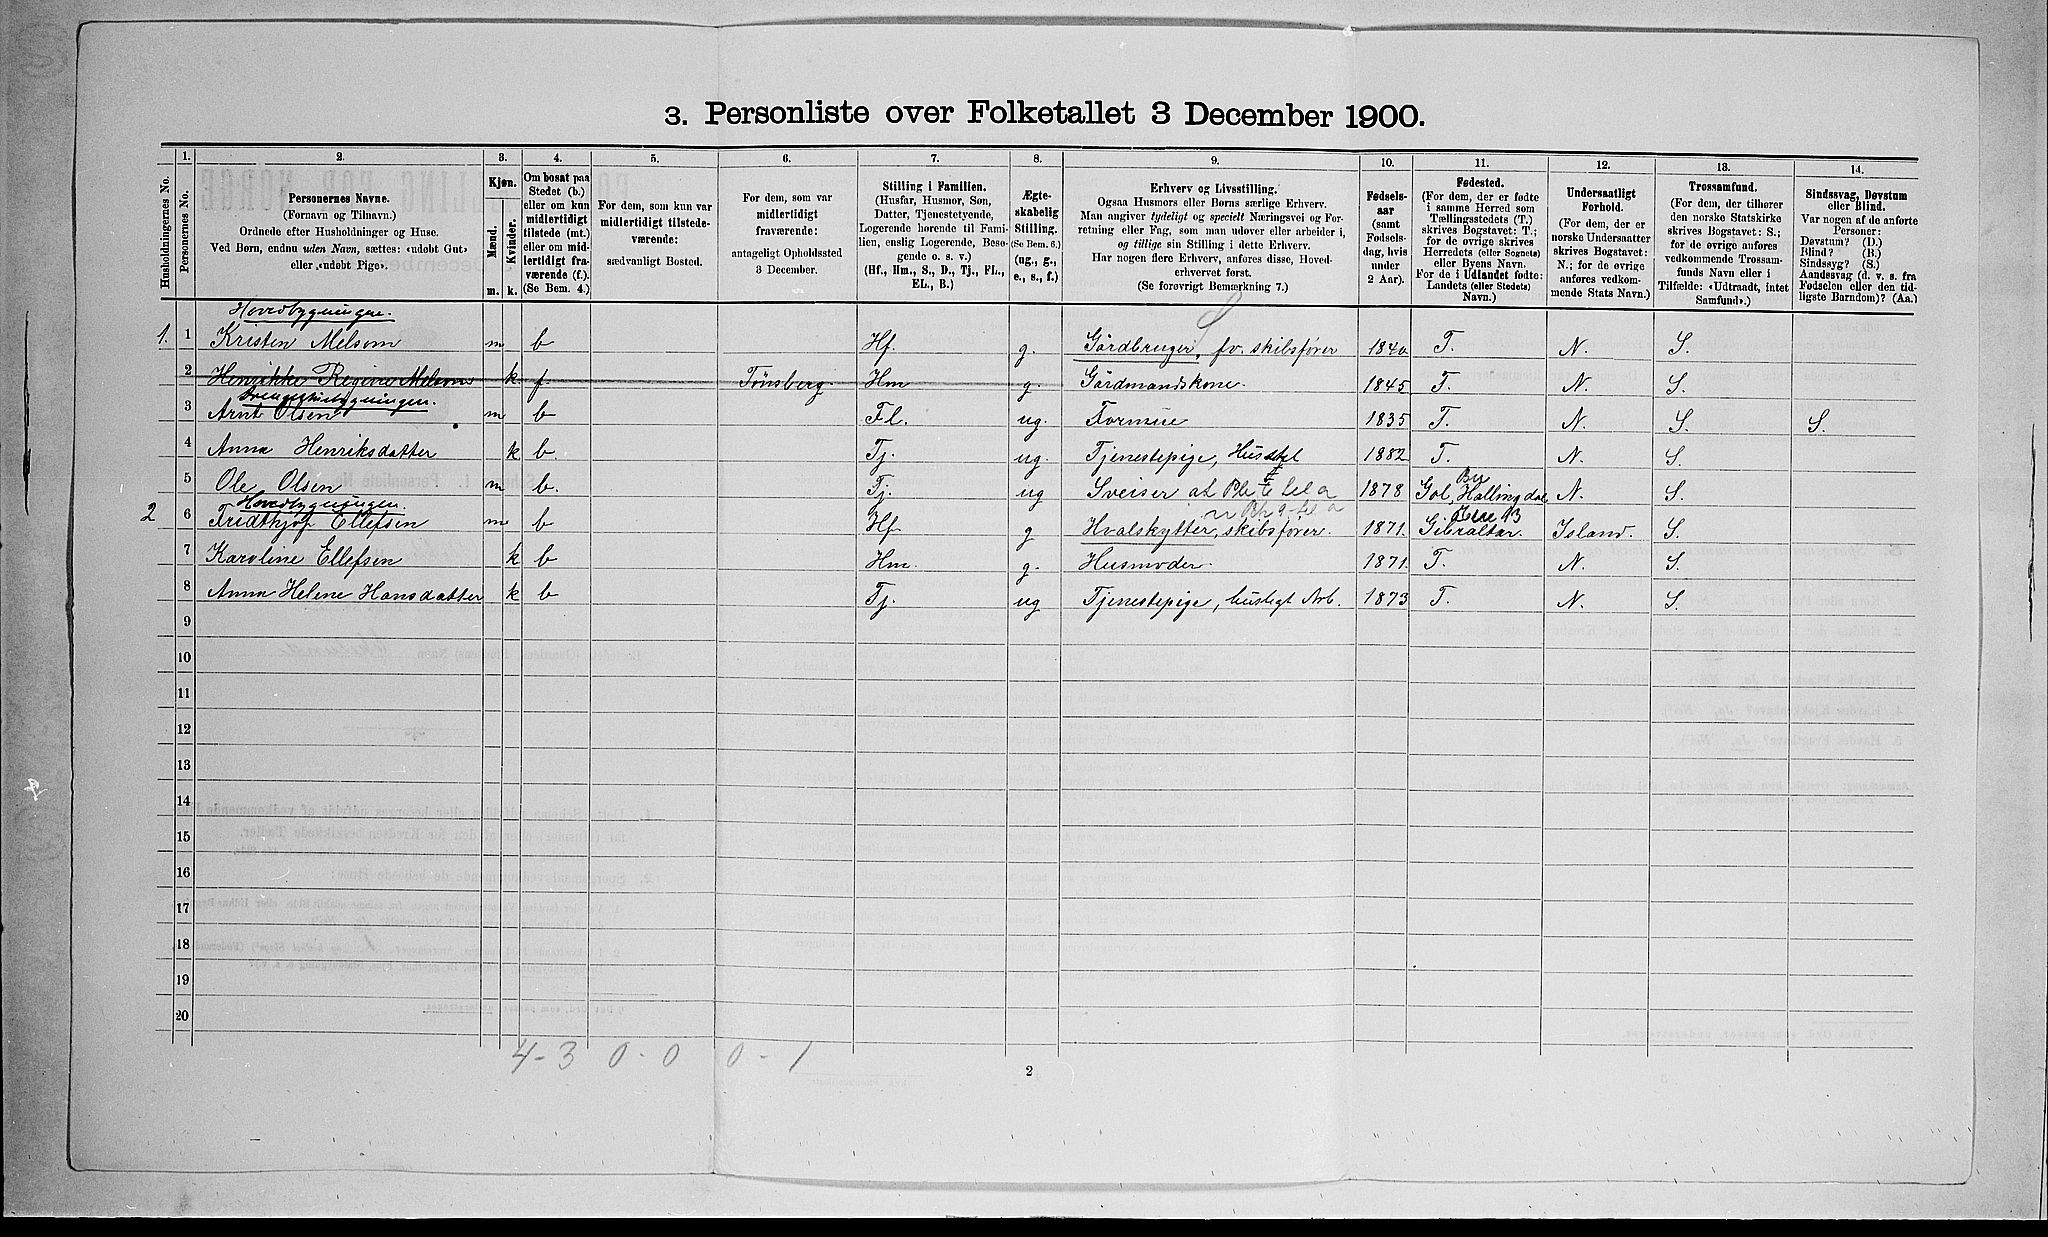 3. Personliste over Folketallet 3 December 1900.
Husholdningernes No.
1.
Personernes No.
2.
Personernes Navne.
(Fornavn og Tilnavn.)
Ordnede efter Husholdninger og Huse.
Ved Børn, endnu uden Navn, sættes: «udøbt Gut»
eller «udøbt Pige».
3.
Kjøn.
Mænd.
Kvinder.
m. k.
4.
Om bosat paa
Stedet (b.)
eller om kun
midlertidigt
tilstede (mt.)
eller om mid-
lertidigt fra-
værende (f.).
(Se Bem. 4.)
5.
For dem, som kun var
midlertidigt tilstede-
værende:
sædvanligt Bosted.
6.
For dem, som var
midlertidigt
fraværende:
antageligt Opholdssted
3 December.
7.
Stilling i Familien.
(Husfar, Husmor, Søn,
Datter, Tjenestetyende,
Logerende hørende til Fami-
lien, enslig Logerende, Besø-
gende o. s. v.)
(Hf., Hm., S., D., Tj., FL.,
EL., B.)
8.
Ægte-
skabelig
Stilling.
(Se Bem. 6.)
(ug., g.,
e., s., f.)
9.
Erhverv og Livsstilling.
Ogsaa Husmors eller Børns særlige Erhverv.
Man angiver tydeligt og specielt Næringsvei og For-
retning eller Fag, som man udøver eller arbeider i,
og tillige sin Stilling i dette Erhverv.
Har nogen flere Erhverv, anføres disse, Hoved-
erhvervet først.
(Se forøvrigt Bemærkning 7.)
10.
Fødsels-
aar
(samt
Fødsels-
dag, hvis
under
2 Aar).
11.
Fødested.
(For dem, der er fødte
i samme Herred som
Tællingsstedets (T.)
skrives Bogstavet: T.;
for de øvrige skrives
Herredets (eller Sognets)
eller Byens Navn.
For de i Udlandet fødte:
Landets (eller Stedets)
Navn.)
12.
Undersaatligt
Forhold.
(For dem, der er
norske Undersaatter
skrives Bogstavet:
N.; for de øvrige
anføres vedkom-
mende Stats Navn.)
13.
Trossamfund.
(For dem, der tilhører
den norske Statskirke
skrives Bogstavet: S.;
for de øvrige anføres
vedkommende Trossam-
funds Navn eller i
Tilfælde: «Udtraadt, intet
Samfund».)
14.
Sindssvag, Døvstum
eller Blind.
Var nogen af de anførte
Personer:
Døvstum? (D.)
Blind? (B.)
Sindssyg? (S.)
Aandssvag (d. v. s. fra
Fødselen eller den tid-
ligste Barndom)? (Aa.)
Hovedbygningen.
1. 1 Kristen Melsom m b Hf. g. Gårdbruger, fv. skibsfører 1840 T. N. S.
2 Henrikke Regine Melsom k f. Tønsberg. Hm g. Gårdmandskone. 1845 T. N. S.
3 Arnt Olsen m b Fl. ug. Formue 1835 T. N. S. S.
4 Anna Henriksdatter k b. Tj. ug. Tjenestepige, Husstel 1882 T. N. S.
5 Ole Olsen m b. Tj. ug Sveiser 1878 Gol, Hallingdal N. S.
Hovedbygningen.
2 6 Fridthjof Ellefsen m b Hf g Hvalskytter, skibsfører. 1871. Gibraltar. Island. S.
7 Karoline Ellefsen k b Hm. g. Husmoder. 1871. T. N. S.
8 Anna Helene Hansdatter k b Tj. ug Tjenestepige, husligt Arb. 1873 T. N. S.
9
10
11
12
13
14
15
16
17
18
19
20
4-3 0-0 0-1
2